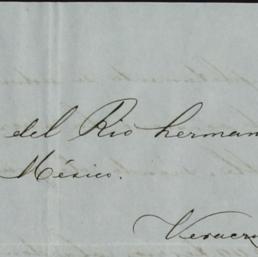 del Rio herman
México.
Veracr